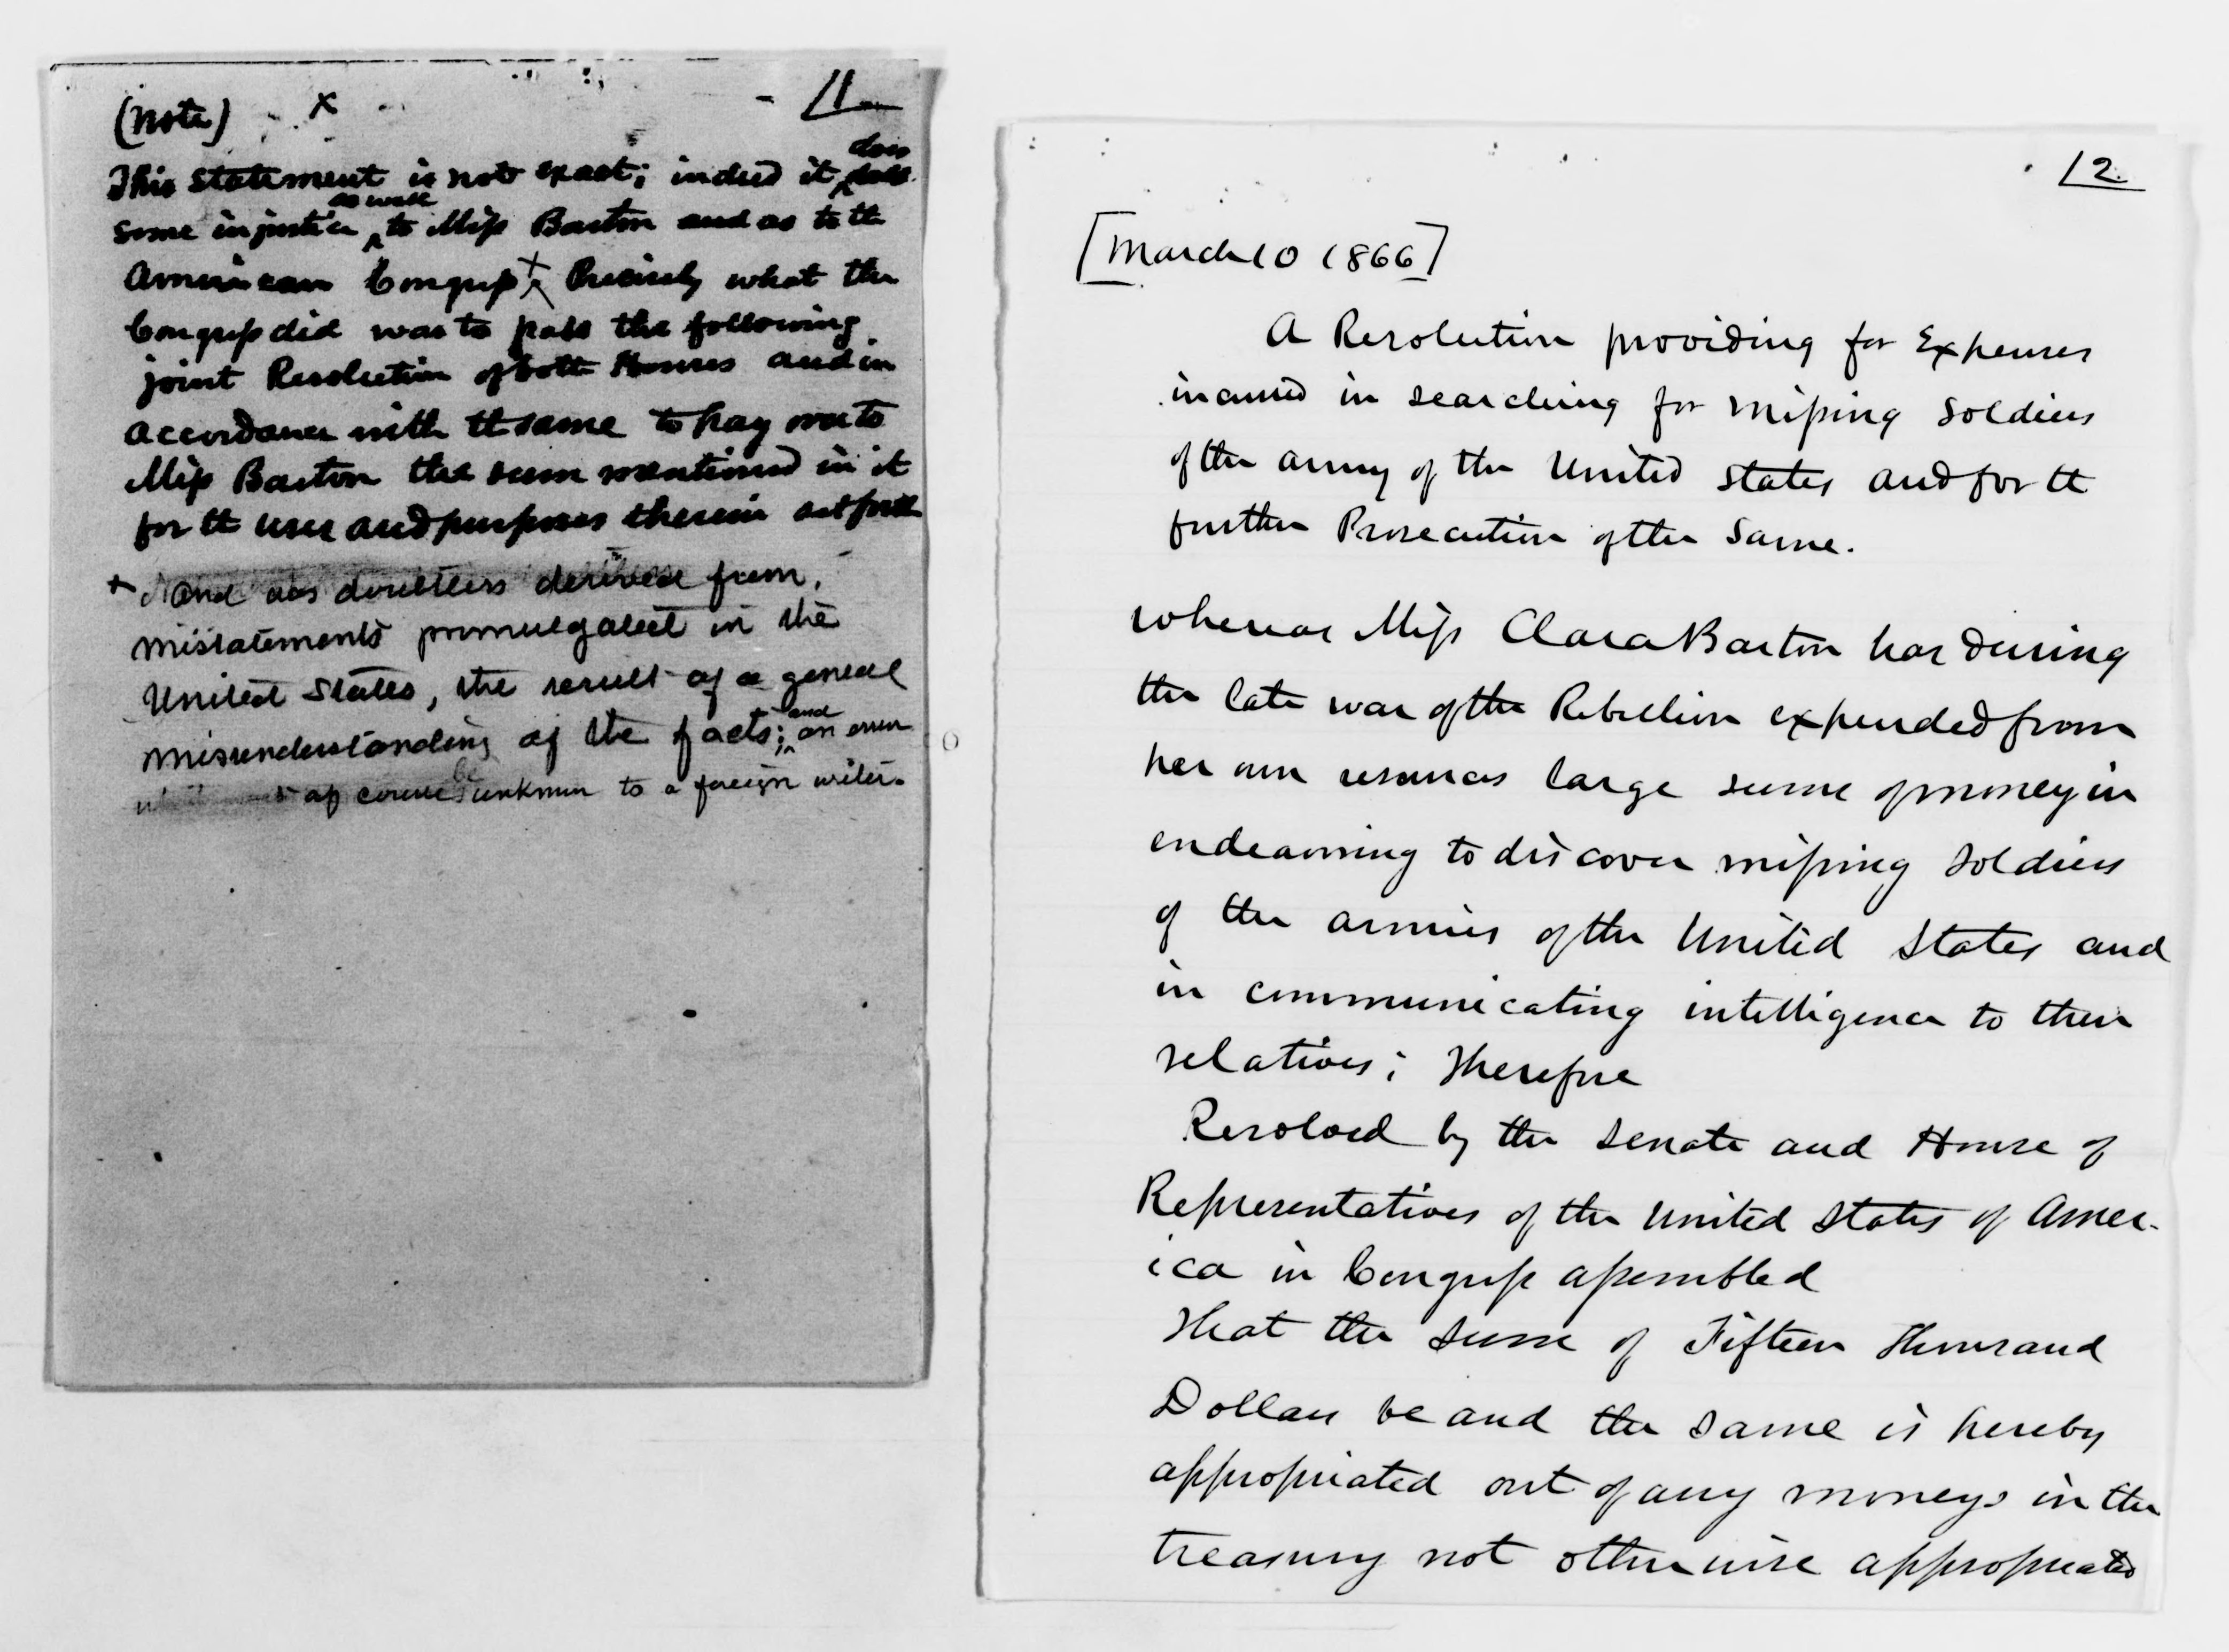 11
(Note) x
does
This statement is not exact; indeed it
as well
some injustice to Miss Barton and as to the
American Congress x Precisely what the
Congress did was to pass the following
joint Resolution of both Houses and in
accordance with the same to pay over to
Miss Barton the sum mentioned in it
for the uses and purposes therein set forth
x and was doubtless derived from,
misstatements promulgated in the
United States, the result of a general
and
misunderstanding of the facts; an error
of course be unknown to a foreign writer.
12
[March 10 1866]
A Resolution providing for Expenses
incurred in searching for missing soldiers
of the army of the United States and for the
further Prosecution of the same.
Whereas Miss Clara Barton has during
the late war of the Rebellion expended from
her own resources large sums of money in
endeavoring to discover missing soldiers
of the armies of the United States and
in communicating intelligence to their
relatives; Therefore
Resolved by the Senate and House of
Representatives of the United States of Amer-
ica in Congress assembled
That the sum of Fifteen Thousand
Dollars be and the same is hereby
appropriated out of any moneys in the
treasury not otherwise appropriated